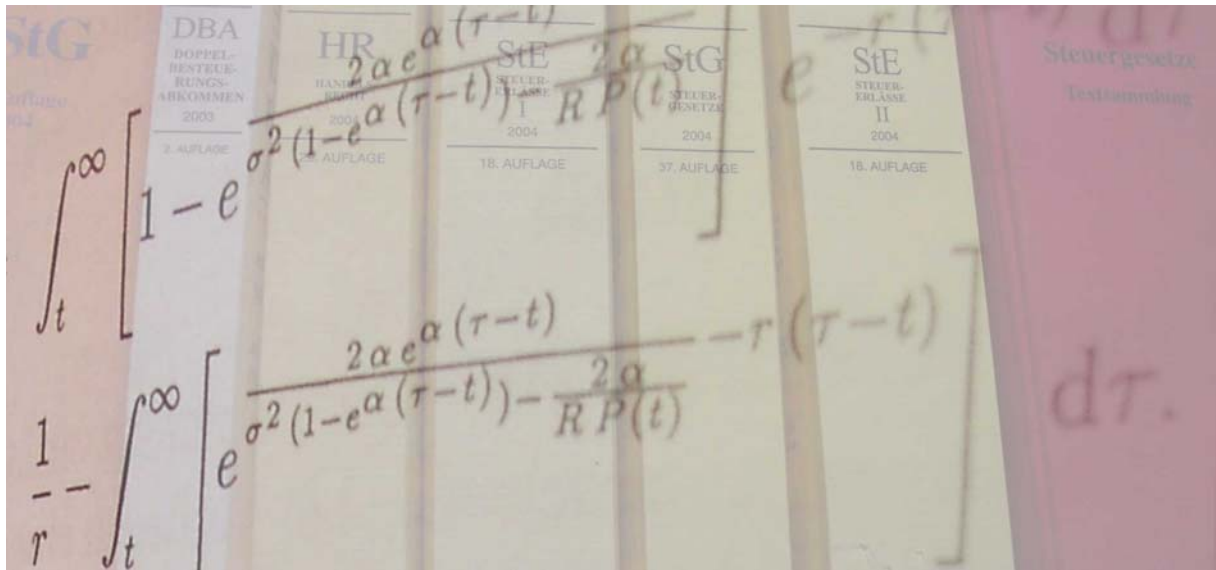 StG
DBA
DOPPEL-
BESTEUE-
RUNGS-
ABKOMMEN
2003
2. AUFLAGE
HR
RECHT
2004
AUFLAGE
StE
STEUER-
ERLÄSSE
I
2004
18. AUFLAGE
StG
STEUER-
GESETZE
2004
37. AUFLAGE
StE
STEUER-
ERLÄSSE
II
2004
18. AUFLAGE
Steuergesetze
Textsammlung
∫_t^∞ [1 − e^{2αe^{α(τ−t)} / (σ²(1−e^{α(τ−t)}) − 2α/(R P(t)))}] e^{−r(τ−t)} dτ
1/r − ∫_t^∞ [e^{2αe^{α(τ−t)} / (σ²(1−e^{α(τ−t)}) − 2α/(R P(t))) − r(τ−t)}] dτ.